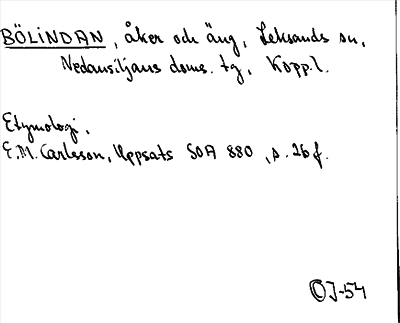 BÖLINDAN, åker och äng, Leksands sn,
Nedansiljans doms. tg, Kopp.l.
Etymologi.
E.M. Carlsson, Uppsats SOA 880, s. 26 f.
OJ-54